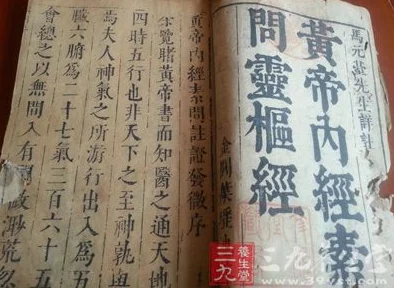 馬元臺先生詳註
黃帝內經素
問靈樞經
金閶葉
黃帝內經素問註證發微序
余覽睹黃帝書而知醫之通天地
四時五行也非天下之至神孰與
焉夫人神氣之所游行出入爲五
臟六腑爲二十七氣三百六十五
會總之以無間入有間渺荒忽
三九
養生堂
www.39yst.com